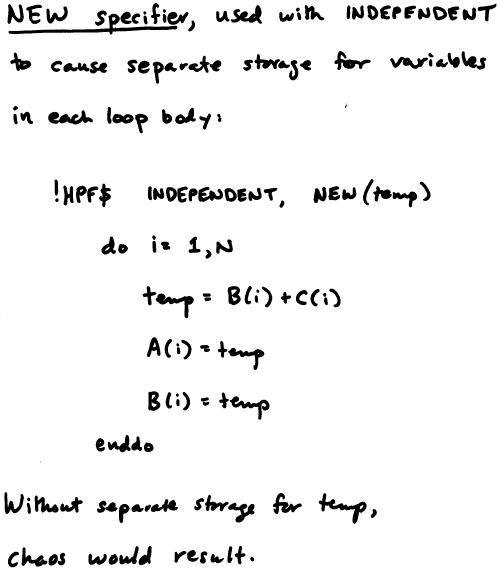 NEW specifier, used with INDEPENDENT
to cause separate storage for variables
in each loop body:
!HPF$ INDEPENDENT, NEW (temp)
do i = 1,N
temp = B(i) + C(i)
A(i) = temp
B(i) = temp
enddo
Without separate storage for temp,
chaos would result.